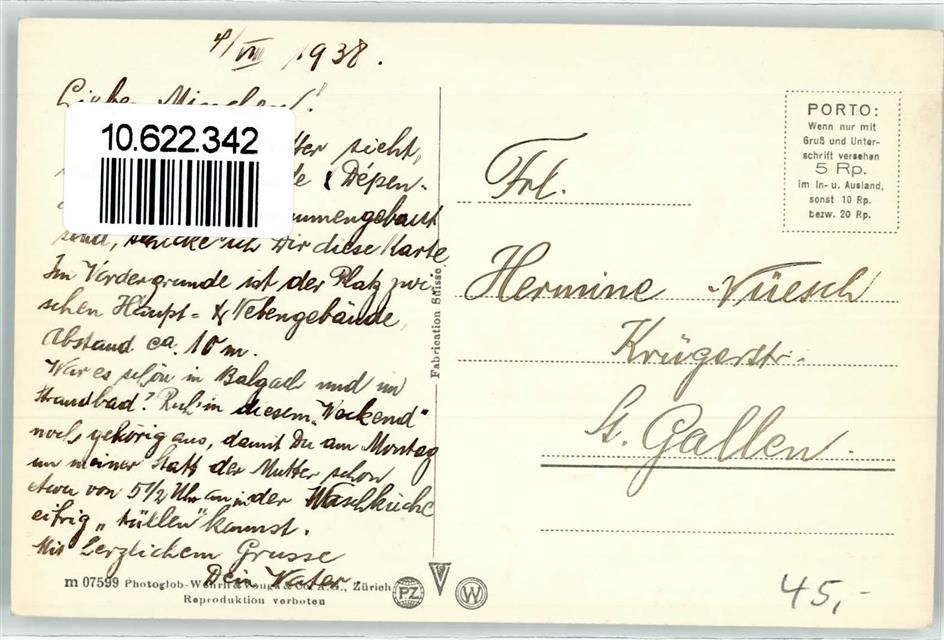 4/VIII 1938.
Liebe Minchen!
10.622.342
tter sieht,
de & Dépen-
ummengebaut
sind, schicke ich Dir diese Karte
Im Vordergrunde ist der Platz zwi-
schen Haupt- & Nebengebäude,
Abstand ca. 10 m.
War es schön in Balgach und im
Strandbad? Ruh' in diesem „Wockend"
noch gehörig aus, damit Du am Montag
an meiner Statt der Mutter schon
etwa von 5 1/2 Uhr an in der Waschküche
eifrig „ " kannst.
Mit herzlichem Grusse
Dein Vater.
m 07599 Photoglob-Wehrli & Vouga & Co. A.G., Zürich
Reproduktion verboten
PZ
V
W
Fabrication Suisse
PORTO:
Wenn nur mit
Gruß und Unter-
schrift versehen
5 Rp.
im In- u. Ausland,
sonst 10 Rp.
bezw. 20 Rp.
Frl.
Hermine Nüesch
Krügerstr.
St. Gallen.
45,-